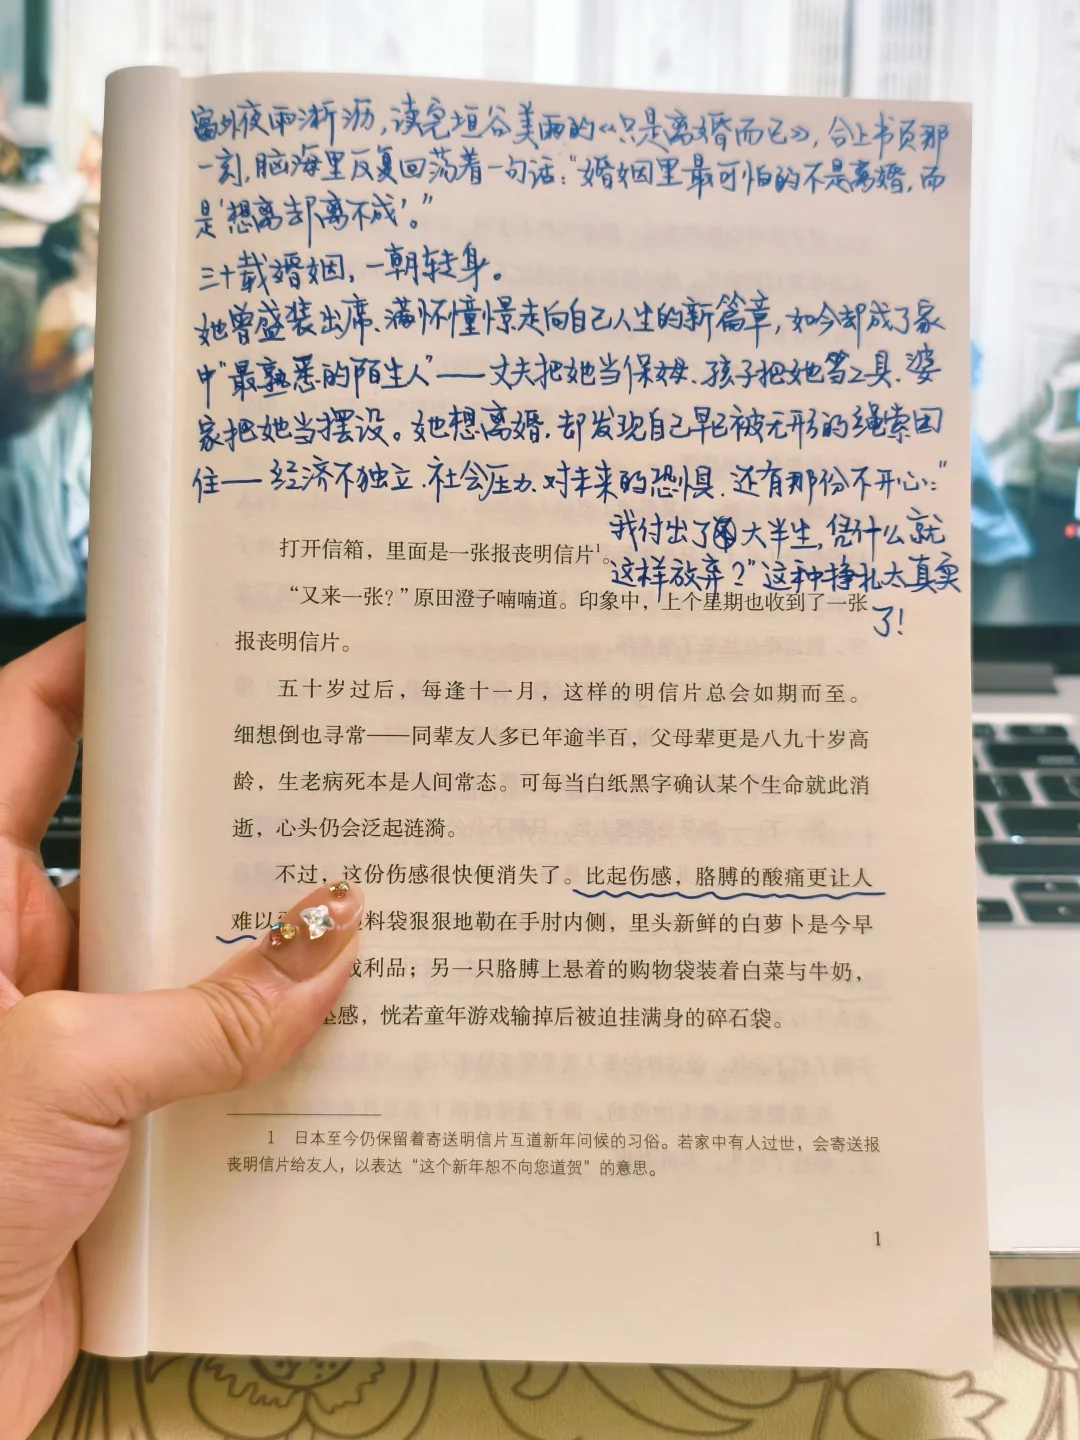 窗外夜雨淅沥,读完垣谷美雨的《只是离婚而已》,合上书页那
一刻,脑海里反复回荡着一句话:“婚姻里最可怕的不是离婚,而
是‘想离却离不成’。”
三十载婚姻,一朝转身。
她曾盛装出席、满怀憧憬走向自己人生的新篇章,如今却成了家
中“最熟悉的陌生人”——丈夫把她当保姆、孩子把她当工具、婆
家把她当摆设。她想离婚,却发现自己早已被无形的绳索困
住——经济不独立、社会压力、对未来的恐惧、还有那份不开心:“
我付出了大半生,凭什么就
这样放弃?”这种挣扎太真实
了!
打开信箱,里面是一张报丧明信片1。
“又来一张?”原田澄子喃喃道。印象中,上个星期也收到了一张
报丧明信片。
五十岁过后,每逢十一月,这样的明信片总会如期而至。
细想倒也寻常——同辈友人多已年逾半百,父母辈更是八九十岁高
龄,生老病死本是人间常态。可每当白纸黑字确认某个生命就此消
逝,心头仍会泛起涟漪。
不过,这份伤感很快便消失了。比起伤感,胳膊的酸痛更让人
难以 料袋狠狠地勒在手肘内侧,里头新鲜的白萝卜是今早
战利品;另一只胳膊上悬着的购物袋装着白菜与牛奶,
坠感,恍若童年游戏输掉后被迫挂满身的碎石袋。
1 日本至今仍保留着寄送明信片互道新年问候的习俗。若家中有人过世,会寄送报
丧明信片给友人,以表达“这个新年恕不向您道贺”的意思。
1